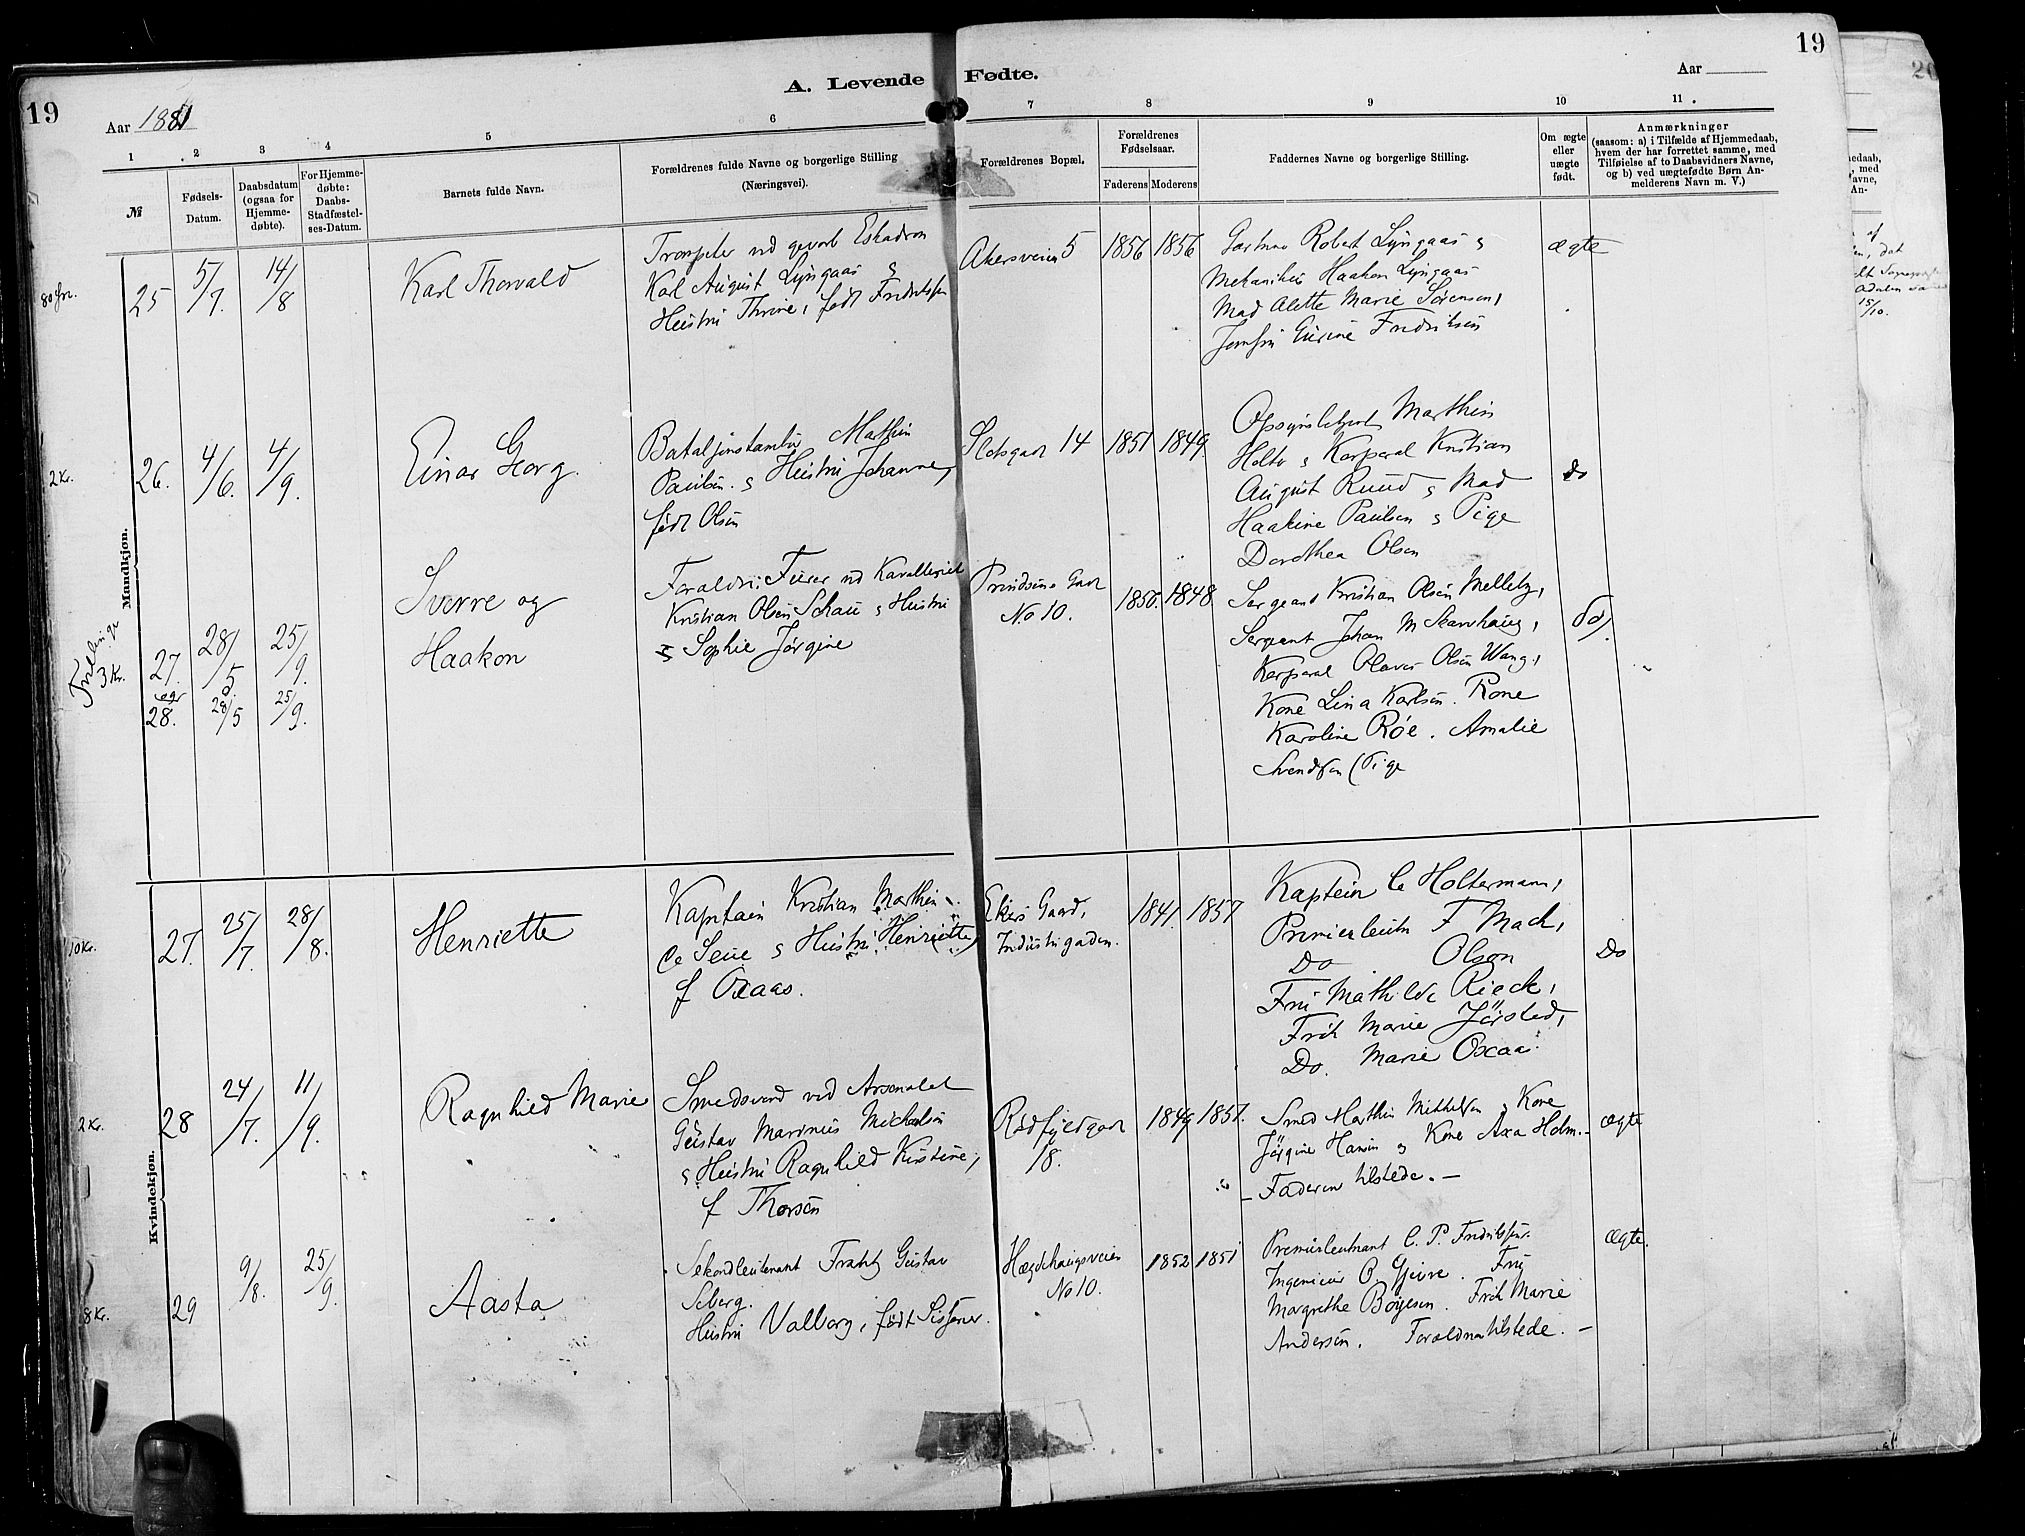 19
A. Levende Fødte.
19
Aar 1881
Aar
1
2
3
4
5
6
7
8
9
10
11
№
Fødsels-
Datum.
Daabsdatum
(ogsaa for
Hjemme-
døbte).
For Hjemme-
døbte:
Daabs-
Stadfæstel-
ses-Datum.
Barnets fulde Navn.
Forældrenes fulde Navne og borgerlige Stilling
(Næringsvei).
Forældrenes Bopæl.
Forældrenes
Fødselsaar.
Faderens
Moderens
Faddernes Navne og borgerlige Stilling.
Om ægte
eller
uægte
født.
Anmærkninger
(saasom: a) i Tilfælde af Hjemmedaab,
hvem der har forrettet samme, med
Tilføielse af to Daabsvidners Navne,
og b) ved uægtefødte Børn An-
melderens Navn m. V.)
Mandkjøn.
25
5/7.
14/8
Karl Thorvald
Trompeter ved gevorb Eskadron
Karl August Lyngaas &
Hustru Thrine, født Fredriksen
Akersveien 5
1856
1856
Gartner Robert Lyngaas &
Mekanikus Haakon Lyngaas
Mad Alette Marie Sørensen,
Jomfru Gurine Fredriksen
ægte
2 Kr.
26.
4/6.
4/9.
Einar Georg.
Bataljonstambur Mathin
Paulsen & Hustru Johanne,
født Olsen
Slotsgad 14
1851
1849
Opsynsbetjent Marthin
Holte & Korporal Kristian
August Ruud & Mad
Haakine Paulsen & Pige
Dorothea Olsen
do
Tvillinge
3 Kr.
27.
og
28.
28/5
28/5
25/9.
25/9.
Sverre og
Haakon
Forældre: Furer ved Kavalleriet
Kristian Olsen Schau & Hustru
Sophie Jørgine
Prindsens Gad
No 10.
1856.
1848
Sergeant Kristian Olsen Melleby,
Sergeant Johan M Skarshaug,
Korporal Olaves Olsen Wang,
Kone Lina Karlsen. Kone
Karoline Røe. Amalie
Svendsen (Pige
do.
Kvindekjøn.
10 Kr.
27.
25/7.
28/8.
Henriette
Kaptain Kristian Marthin
Seue & Hustru Henriette,
f Oxaas.
Ekers Gaard,
Industrigaden.
1841.
1857
Kaptein C Holtermann,
Premierleutn F Mack,
Do Olsen
Fru Mathilde Rieck,
Frk Marie Jörsted,
Do. Marie Oxaas.
Do
2 Kr.
28
24/7.
11/9.
Ragnhild Marie
Smedsvend ved Arsenalet
Gustav Marinius Michelsen
& Hustru Ragnhild Kirstine,
f Thorsen
Rødfyldgad
18.
1849
1857.
Smed Marthin Mikkelsen & Kone
Jörgine Hansen & Kone Axa Holm.
– Faderen tilstede. –
ægte
8 Kr.
29
9/8.
25/9.
Aasta
Sekondleutenant Frantz Gustav
Seberg.
Hustru Valborg, født Sissener.
Hægdehaugsveien
No 10.
1852
1851
Premierleutnant C. P. Fredriksen.
Ingenieur O. Gjerre. Fru
Margrethe Böyesen. Frk Marie
Andersen. Forældrene tilstede. –
ægte.